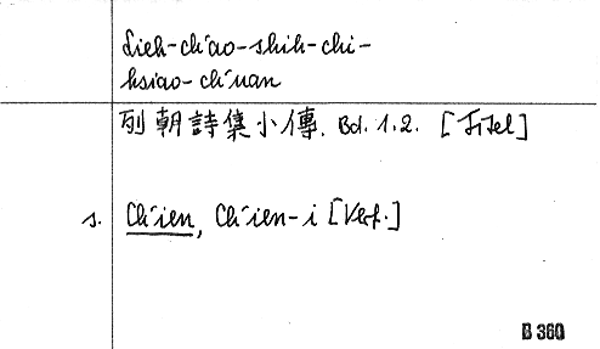 Lieh-ch'ao-shih-chi-
hsiao-ch'uan
列朝詩集小傳. Bd. 1.2. [Titel]
s. Ch'ien, Ch'ien-i [Verf.]
B 360